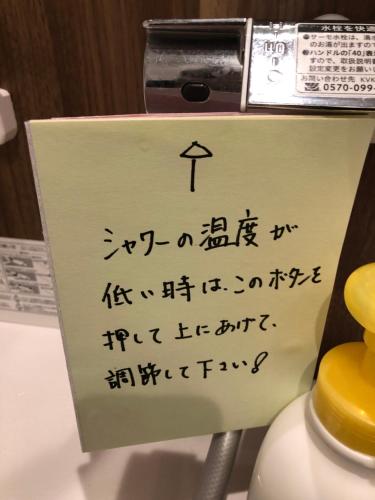 水栓を快適
●サーモ水栓は、湯水
のお湯が出ますので
●ハンドルの「40」表示
ますので、取扱説明書
設定変更をお願いし
お問い合わせ先 KVK
0570-099-
40
シャワーの温度が
低い時は、このボタンを
押して上にあけて、
調節して下さい!